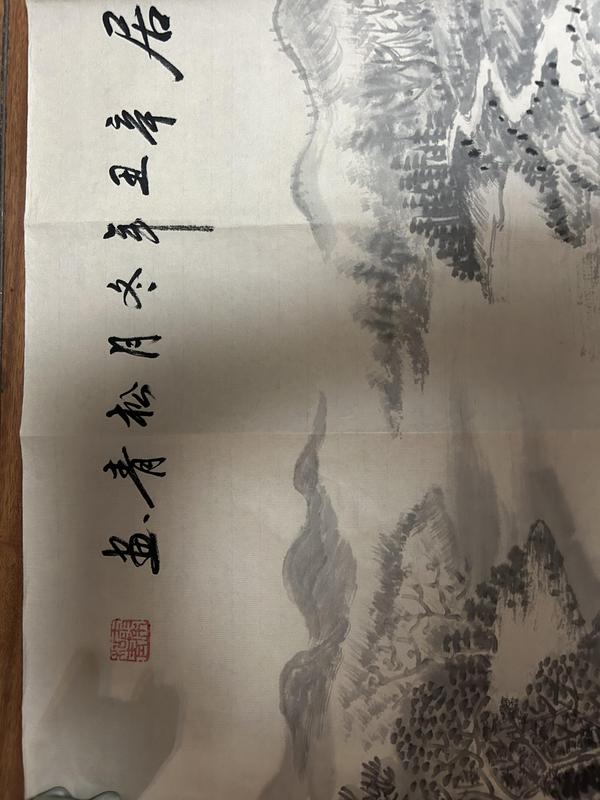 居辛丑年冬月松青画